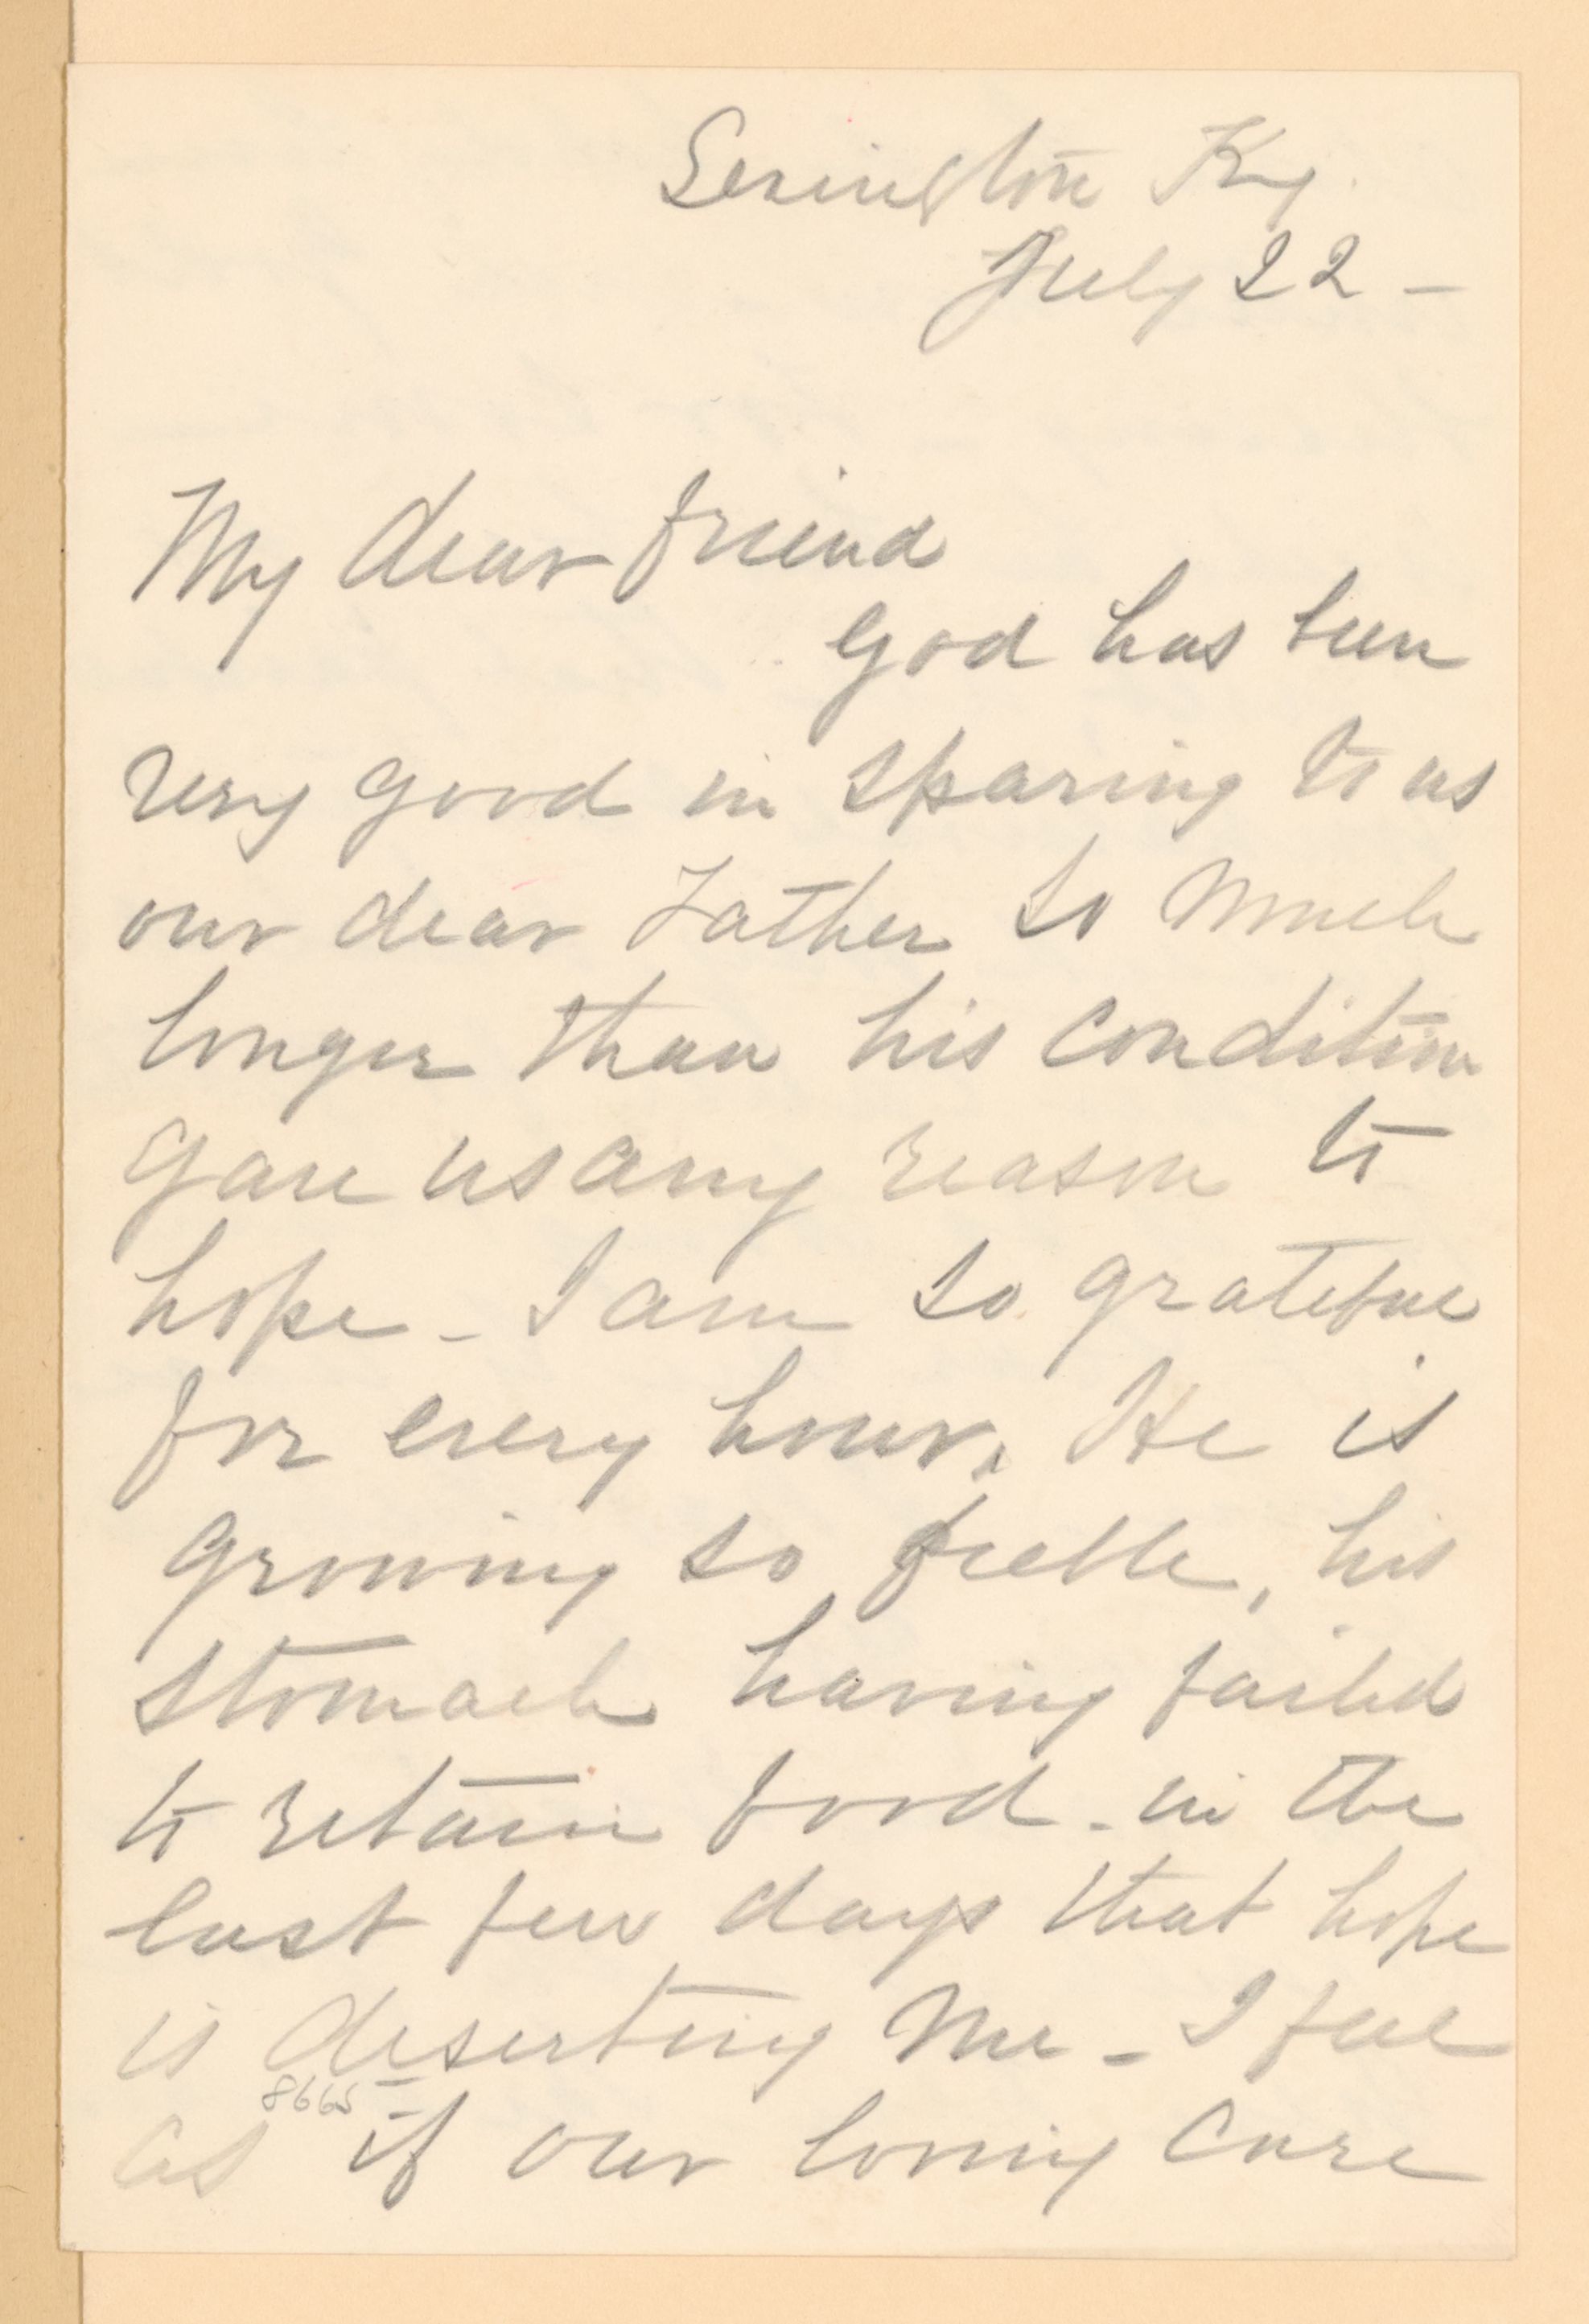 Lexington Ky.
July 22 -
My dear friend
God has been
very good in sparing to us
our dear Father so much
longer than his condition
gave us any reason to
hope - I am so grateful
for every hour. He is
growing so feeble, his
stomach having failed
to retain food - in the
last few days that hope
is deserting me - I feel
8665
as if our loving care